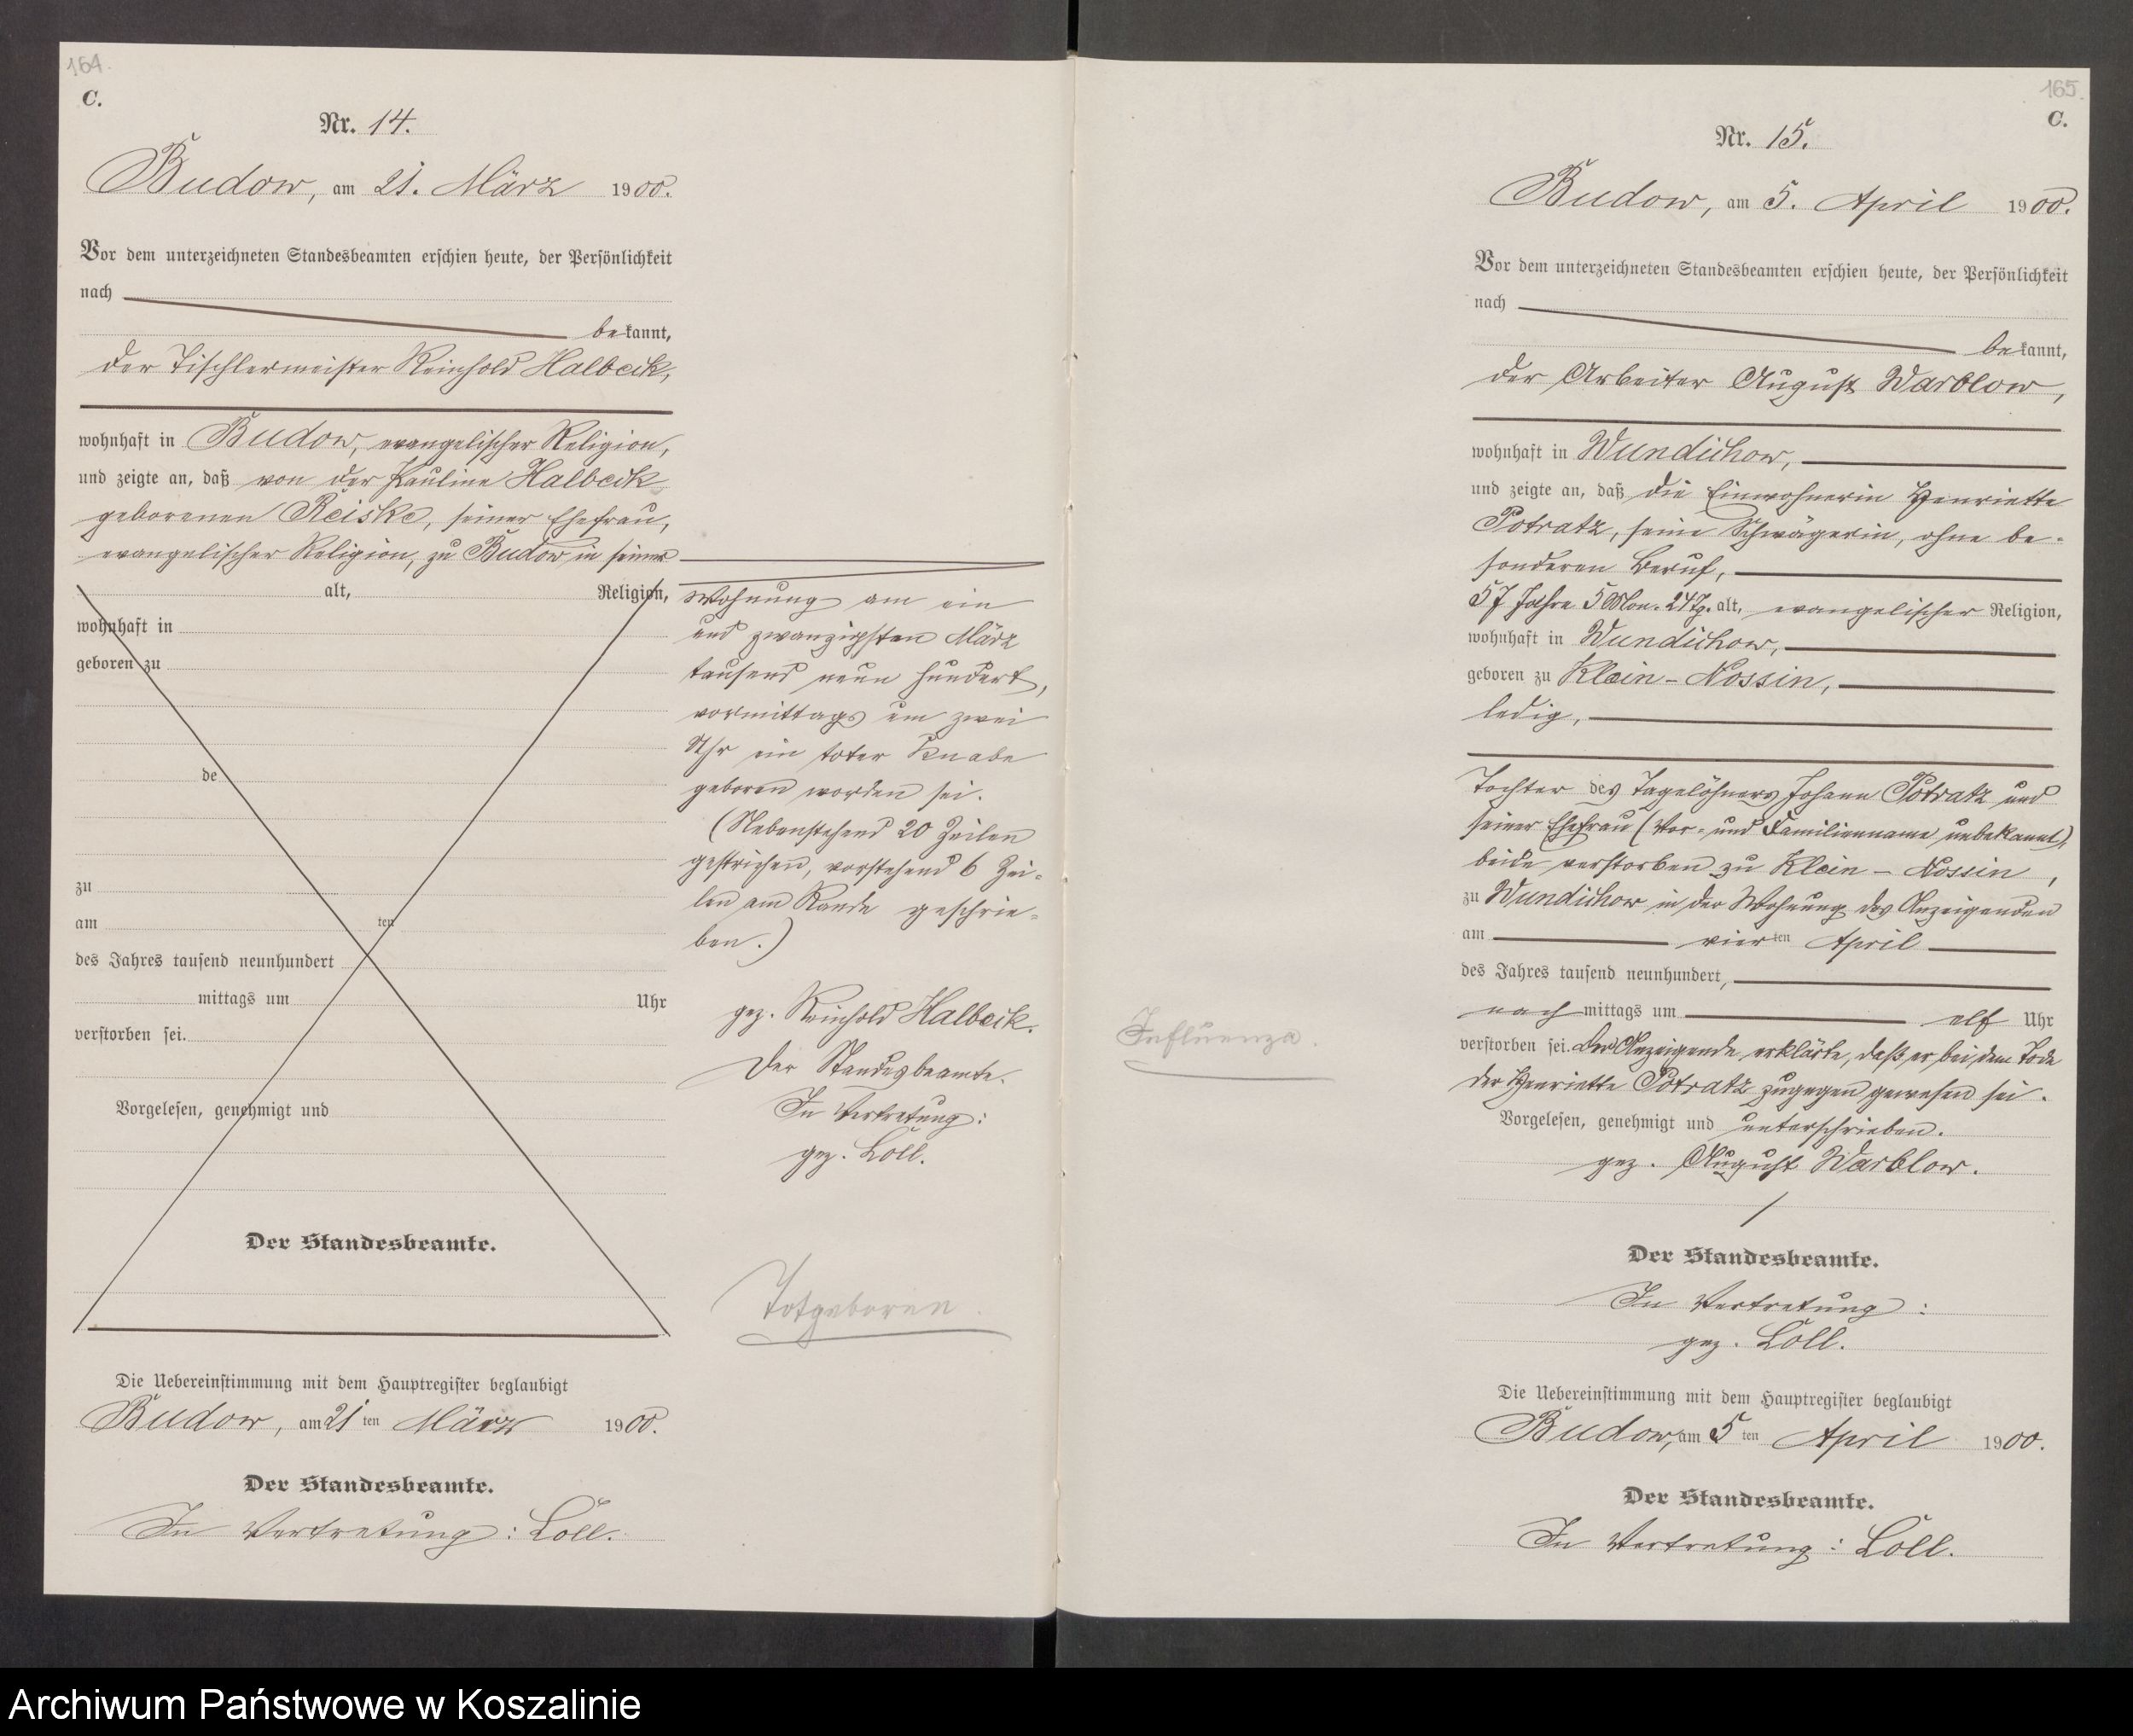 164.
C.
Nr. 14.
Budow, am 21. März 1900.
Vor dem unterzeichneten Standesbeamten erschien heute, der Persönlichkeit
nach
bekannt,
der Tischlermeister Reinhold Halbeik,
wohnhaft in Budow, evangelischer Religion,
und zeigte an, daß von der Pauline Halbeik
geborenen Reiske, seiner Ehefrau,
evangelischer Religion, zu Budow in seiner
alt, Religion,
wohnhaft in
geboren zu
de
zu
am ten
des Jahres tausend neunhundert
mittags um Uhr
verstorben sei.
Vorgelesen, genehmigt und
Der Standesbeamte.
Wohnung am ein
und zwanzigsten März
tausend neun hundert,
vormittags um zwei
Uhr ein toter Knabe
geboren worden sei.
(Nebenstehend 20 Zeilen
gestrichen, vorstehend 6 Zei-
len am Rande geschrie-
ben.)
gez. Reinhold Halbeik.
Der Standesbeamte.
In Vertretung:
gez. Löll.
Totgeboren.
Die Uebereinstimmung mit dem Hauptregister beglaubigt
Budow, am 21 ten März 1900.
Der Standesbeamte.
In Vertretung: Löll.
165.
C.
Nr. 15.
Budow, am 5. April 1900.
Vor dem unterzeichneten Standesbeamten erschien heute, der Persönlichkeit
nach
bekannt,
der Arbeiter August Warblow,
wohnhaft in Wundichow,
und zeigte an, daß die Einwohnerin Henriette
Potratz, seine Schwägerin, ohne be-
sonderen Beruf,
57 Jahre 5 Mon. 24 Tg. alt, evangelischer Religion,
wohnhaft in Wundichow,
geboren zu Klein-Nossin,
ledig,
Tochter des Tagelöhners Johann Potratz und
seiner Ehefrau (Vor- und Familienname unbekannt),
beide verstorben zu Klein-Nossin,
zu Wundichow in der Wohnung des Anzeigenden
am vierten April
des Jahres tausend neunhundert,
nachmittags um elf Uhr
verstorben sei. Der Anzeigende erklärte, daß er bei dem Tode
der Henriette Potratz zugegen gewesen sei.
Vorgelesen, genehmigt und unterschrieben.
gez. August Warblow.
Influenza.
Der Standesbeamte.
In Vertretung:
gez. Löll.
Die Uebereinstimmung mit dem Hauptregister beglaubigt
Budow, am 5 ten April 1900.
Der Standesbeamte.
In Vertretung: Löll.
Archiwum Państwowe w Koszalinie